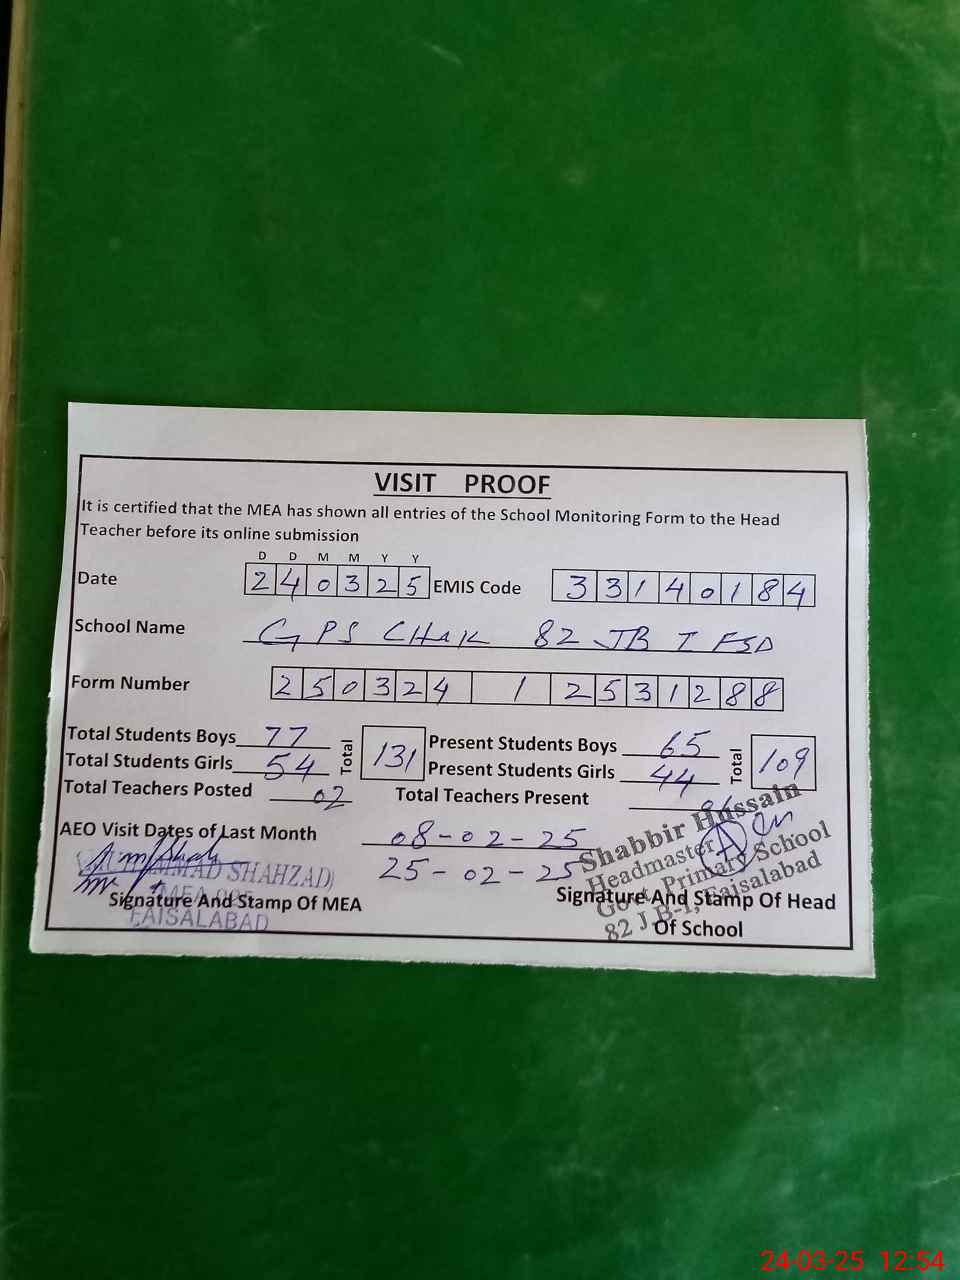 VISIT PROOF
It is certified that the MEA has shown all entries of the School Monitoring Form to the Head
Teacher before its online submission
D D M M Y Y
Date 240325 EMIS Code 33140184
School Name GPS CHAK 82 JB I FSD
Form Number 250324 1 2531288
Total Students Boys 77 Total 131 Present Students Boys 65 Total 109
Total Students Girls 54 Present Students Girls 44
Total Teachers Posted 02 Total Teachers Present
AEO Visit Dates of Last Month 08-02-25
25-02-25
SHAHZAD
FAISALABAD
Signature And Stamp Of MEA
Shabbir Hussain
Headmaster
Govt. Primary School
82 J.B-I, Faisalabad
Signature And Stamp Of Head
Of School
24-03-25 12:54